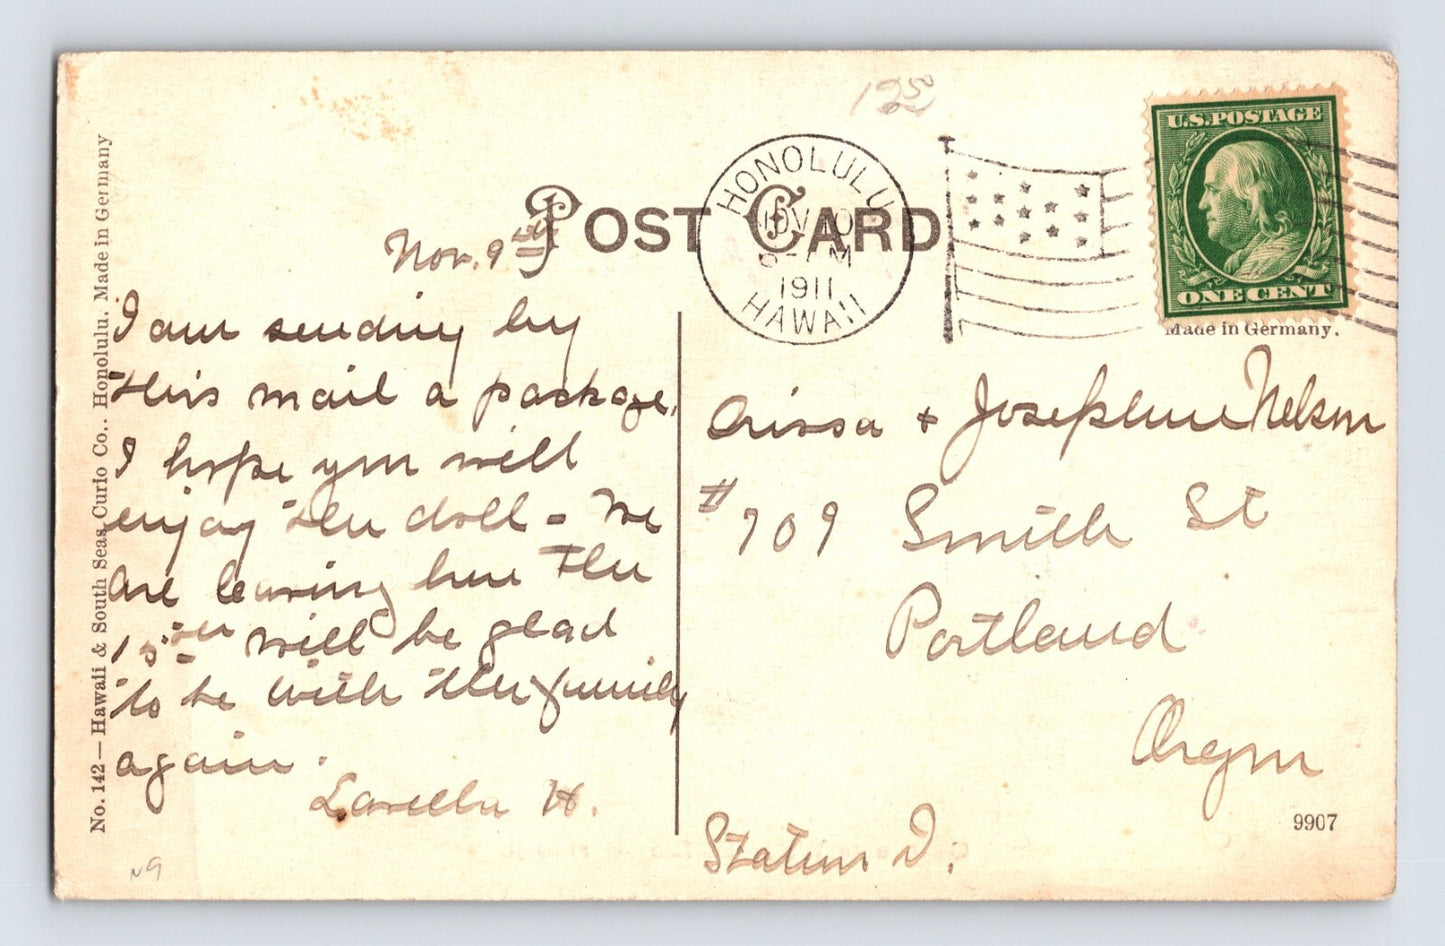 12.50
POST CARD
HONOLULU
NOV 10
1911
HAWAII
U.S. POSTAGE
ONE CENT
Made in Germany.
Nov. 9th
I am sending by
this mail a package,
I hope you will
enjoy the doll - We
are leaving here the
15th will be glad
to be with the family
again.
H.
& Josephine Nelson
# 709 Smith St
Portland
Oregon
Station D.
9907
No. 142 — Hawaii & South Seas Curio Co., Honolulu. Made in Germany